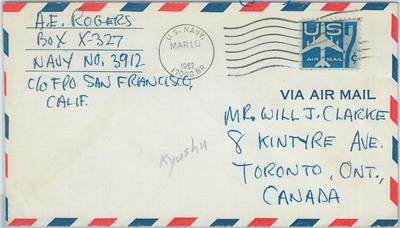 A.E. ROGERS
BOX X-327
NAVY NO. 3912
C/O FPO SAN FRANCISCO,
CALIF.
U.S. NAVY.
MAR 10
1962
17000 BR.
US
7¢
AIR MAIL
VIA AIR MAIL
MR. WILL J. CLARKE
8 KINTYRE AVE.
TORONTO, ONT.,
CANADA
Kyushu